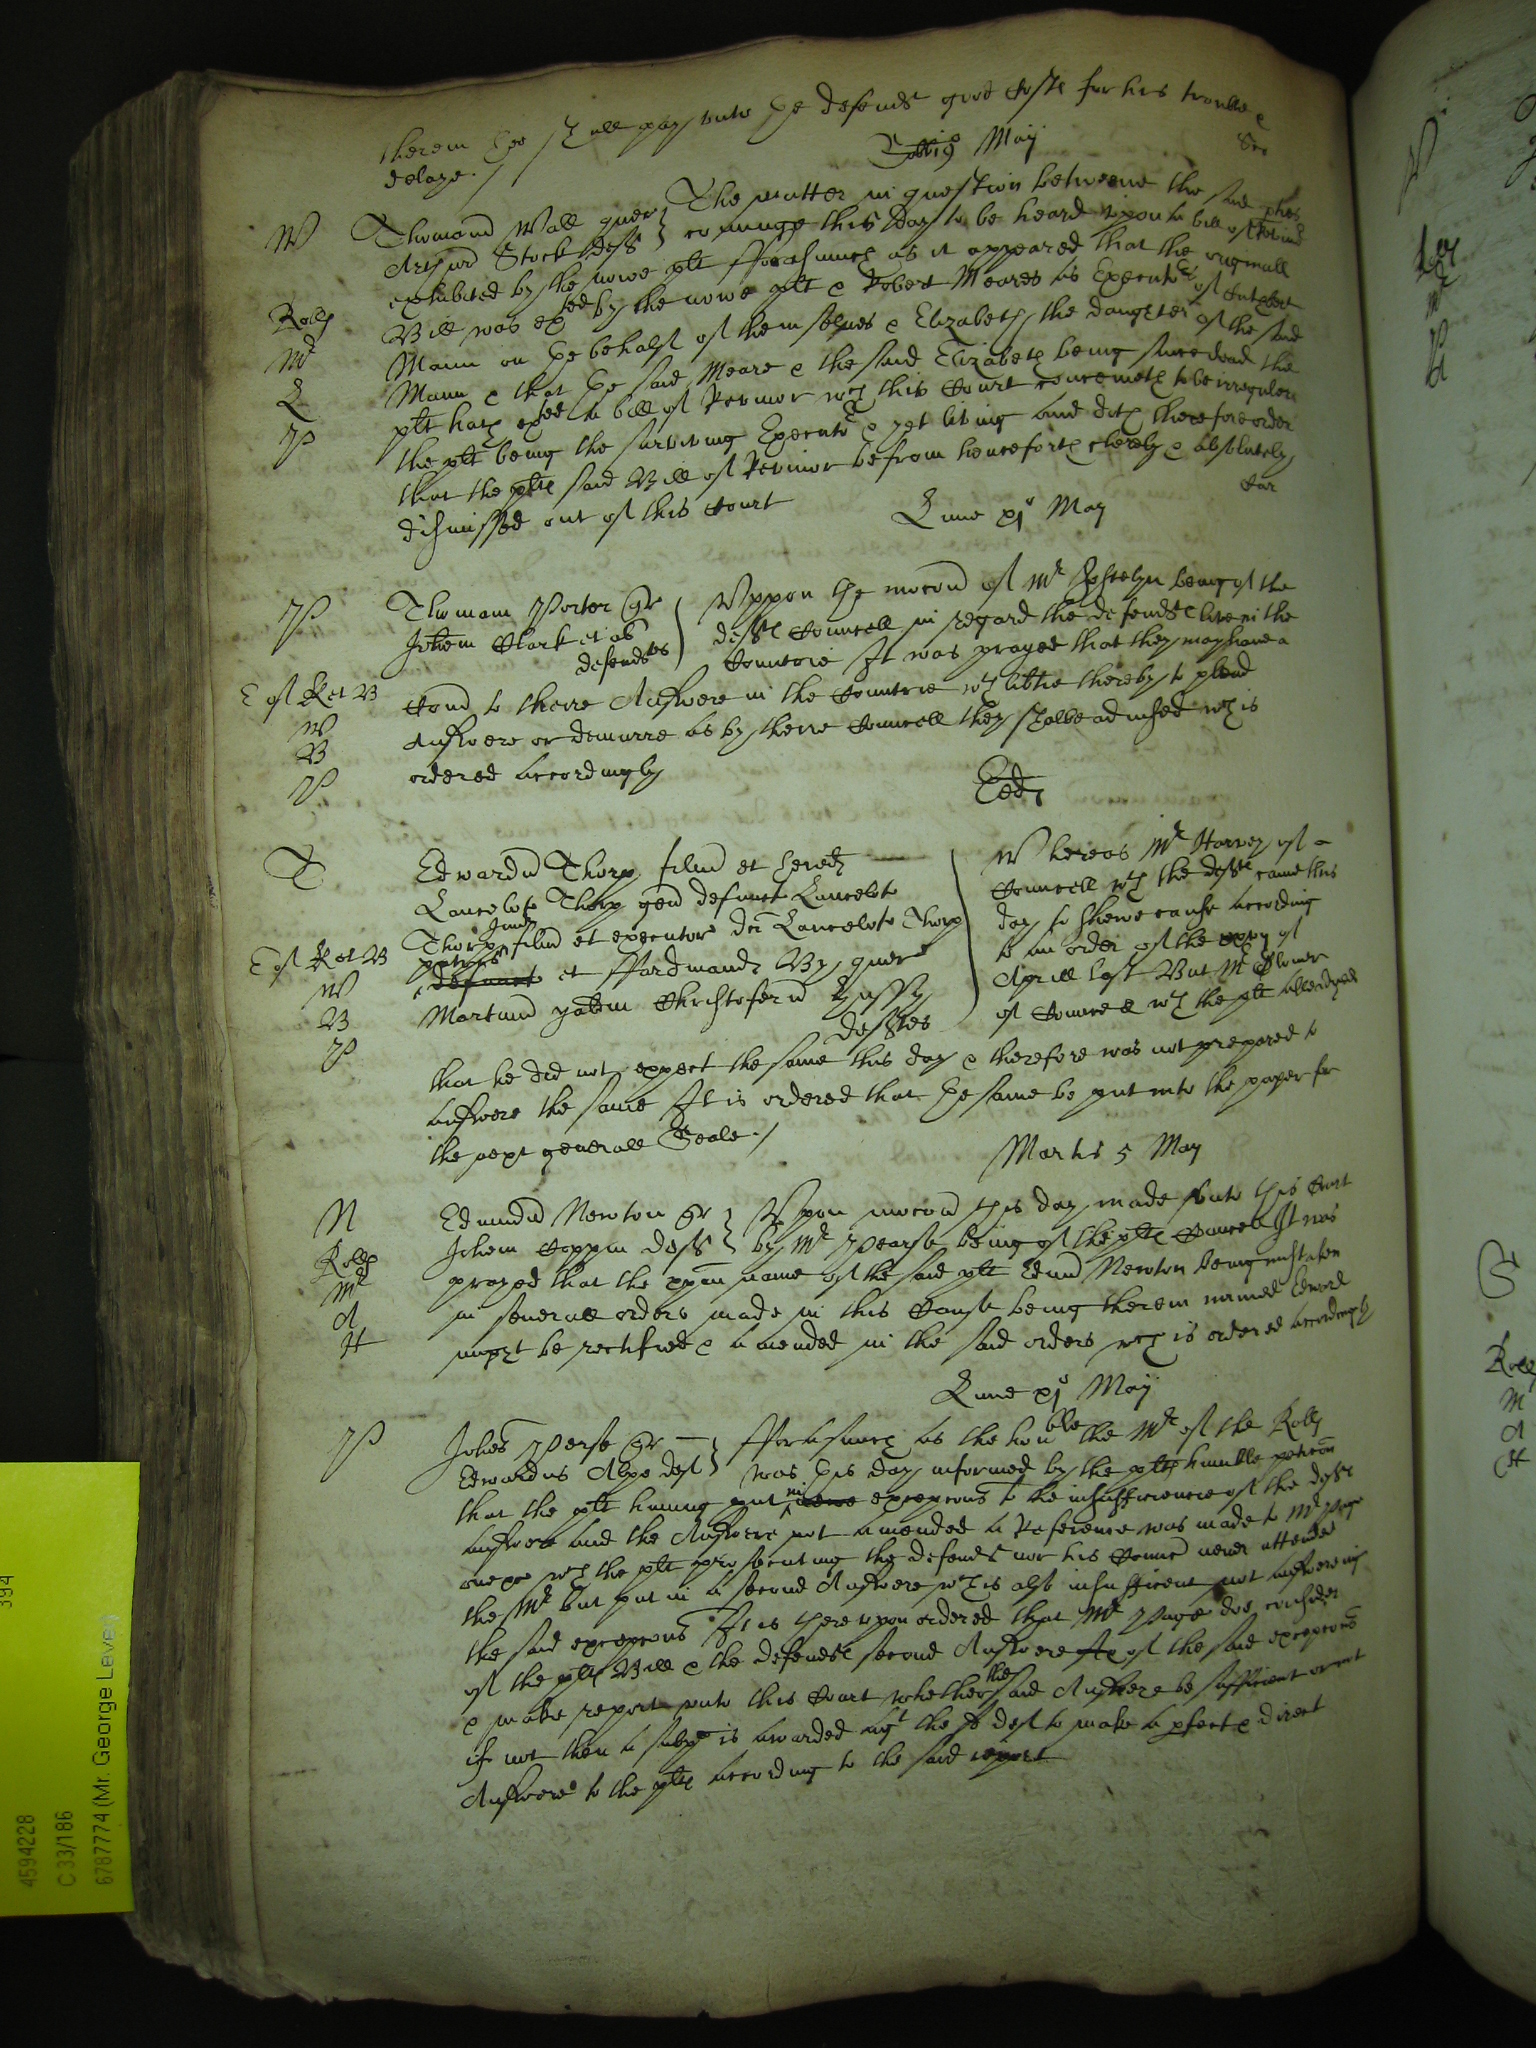 therein hee shall pay unto the defendt good Costs for his trouble &
delaye./
May
W Thomam Wall quer } The matter in question betweene the said pties
Arthur Stock deft } cominge this day to be heard upon a bill of Revivor
exhibited by the nowe plt fforasmuch as it appeared that the originall
Rolls Bill was exed by the nowe plt & Robert Meares as Executors of Cutbert
Mr Mann on the behalf of themselves & Elizabeth the daughter of the said
L Mann & that the said Meare & the said Elizabeth being since dead the
P plt hath exed a bill of Revivor wch this Court conceiveth to be irregular
the plt being the surviving Executor & yet living and doth therefore order
that the plts said Bill of Revivor be from henceforth cleerely & absolutely
dismissed out of this Court
Lune xjo May
P Thomam Porter qr } Uppon the mocon of Mr Joscelyn being of the
Johem Clark et al } defts Councell in regard the defendts live in the
defendtes Countrie It was prayed that they may have a
E of K et B Comd to take theire Answere in the Countrie wth libtie thereby to plead
W
B Answere or demurre as by theire Councell they shalbe advised wch is
P ordered accordingly
Eod
T Edwardu Thorp filiu et hered
Lanceloti Thorp gen defunct Lancelotu
Thorp Jun filiu et executore dci Lanceloti Thorp
E of K et B patris defunct et Ffardinand By quer
W Martinu Yatem Christoferu Hussy
B deftes
P
Whereas Mr Harvey of
Councell wth the defts came this
day to shewe cause according
to an order of the xxvj of
Aprill last But Mr
of Councell wth the plt alleadged
that he did not expect the same this day & therefore was not prepared to
answere the same It is ordered that the same be put into the paper for
the next generall Seale./
Martis 5 May
N Edmundu Newton qr } Upon mocon this day made unto this Court
Rolls Johem Coppin deft } by Mr Pearse being of the plts Councell It was
Mr prayed that the xpian name of the said plt Edmd Newton being mistaken
A in severall orders made in this Cause being therein named Edward
H might be rectified & amended in the said orders wch is ordered accordingly
Lune xjo May
P Johes Perse qr } Fforasmuch as the honble the Mr of the Rolls
Edwardus Alpe deft } was this day informed by the plts humble peticon
that the plt having put in excepcons to the insufficiencie of the defts
answere and the Answere not amended a Reference was made to Mr Page
one &c wch the plt prosecuting the defendt nor his Councell never attended
the Mr but put in a second Answere wch is also insufficient not answering
the said excepcons It is thereupon ordered that Mr Page doe consider
of the plts Bill & the defendts second Answere & of the said excepcons
& make report unto this Court whether the said Answere be sufficient or not
if not then a subpa is awarded agt the deft to make a pfect & direct
Answere to the plts according to the said report
4594228
C 33/186
6787774 (Mr. George Levey)
394